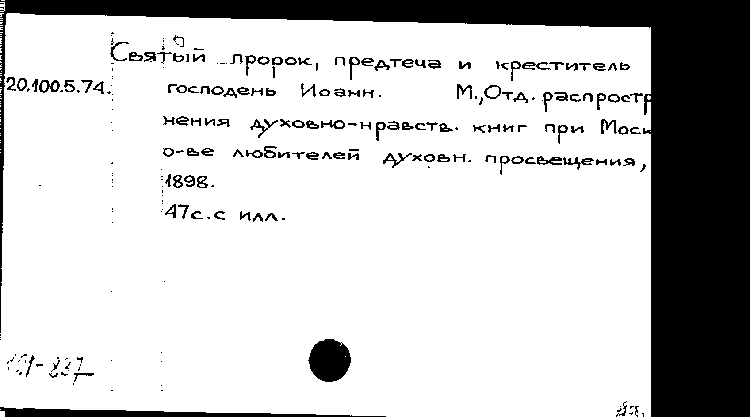 Святый пророк, предтеча и креститель
20.100.5.74. господень Иоанн. М., Отд. распростр
нения духовно-нравств. книг при Моск
о-ве любителей духовн. просвещения,
1898.
47с. с илл.